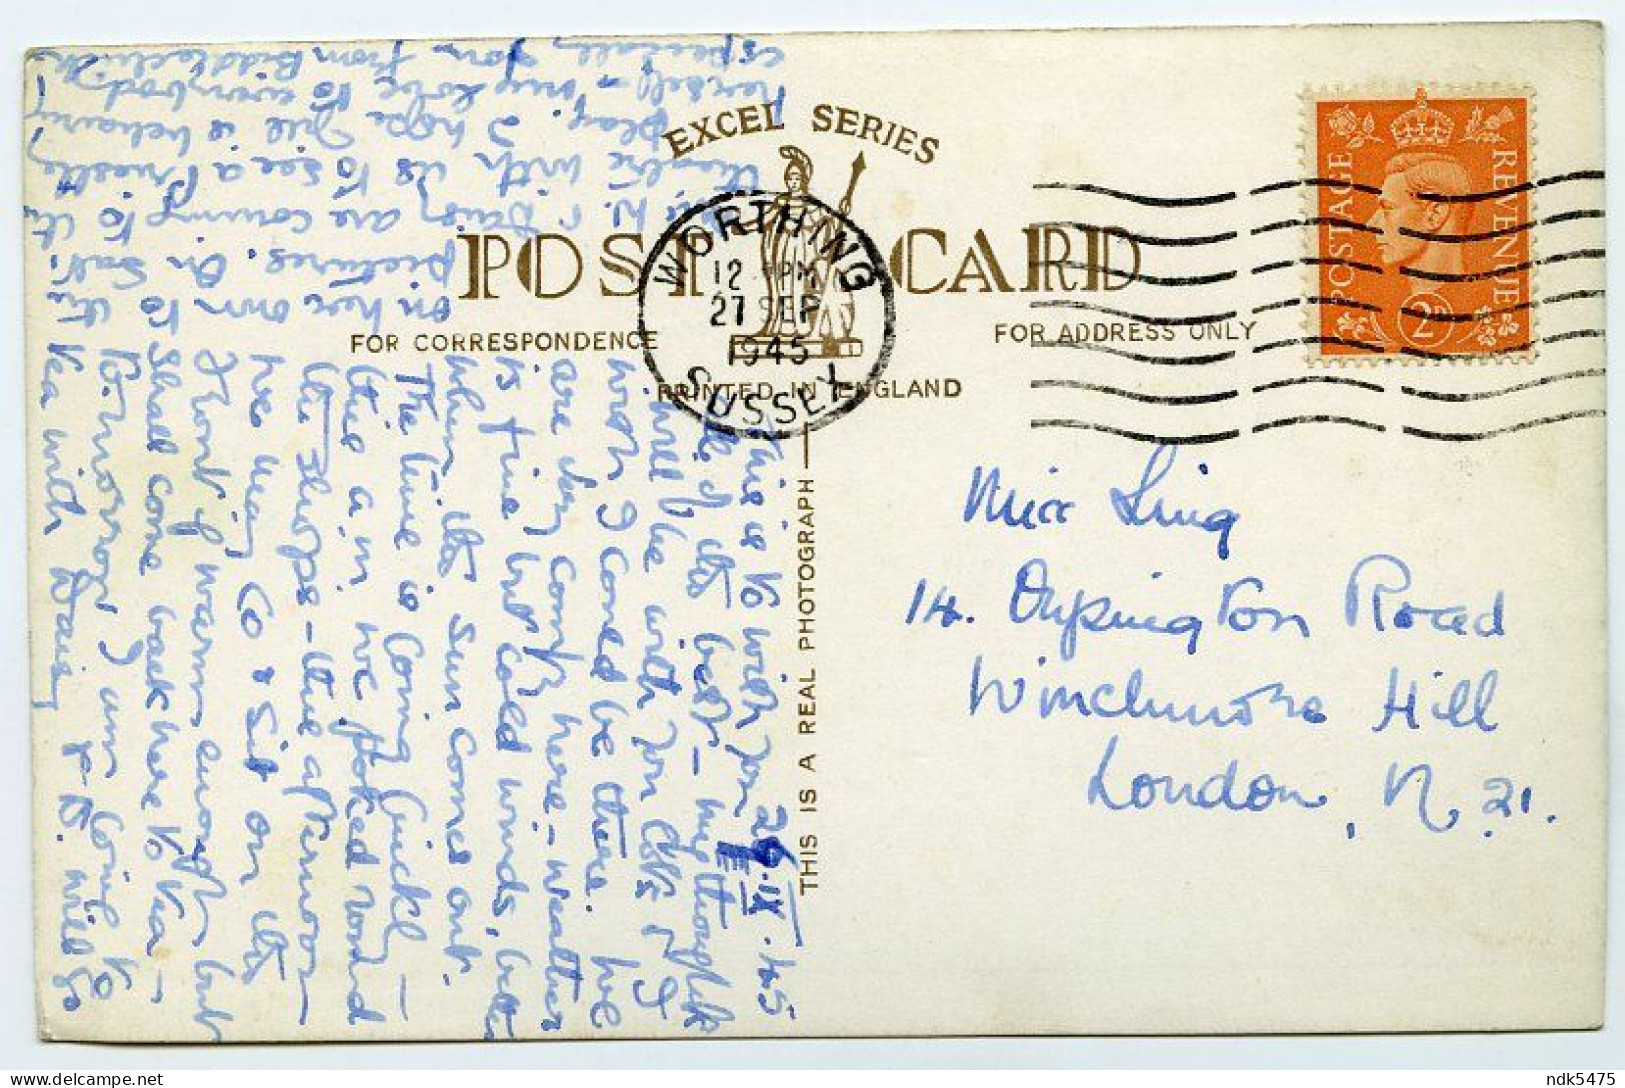 EXCEL SERIES
POST CARD
FOR CORRESPONDENCE
FOR ADDRESS ONLY
PRINTED IN ENGLAND
THIS IS A REAL PHOTOGRAPH
WORTHING
12 PM
27 SEP
1945
SUSSEX
POSTAGE
REVENUE
2D
Miss
14. Orpington Road
Winchmore Hill
London, N. 21.
26.IX.45
This is to wish you
all of the best – my thoughts
will be with you lots & I
wish I could be there. We
are very comf. here – weather
is fine but cold winds, better
when the sun comes out.
The time is going quickly –
this a.m. we poked round
the shops – this afternoon
we may go & sit on the
front if warm enough but
shall come back here to tea –
To-morrow I am going to
tea with Daisy & D. will go
on her own to the
pictures. On Sat.
Daisy are coming to the
theatre with us to see a Priestley
play. I hope Jill is behaving
herself – my love to everybody,
especially you from
ndk5475